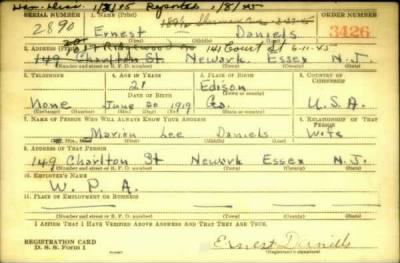 Hon. Disc. 1/8/45 Reported 1/8/45
SERIAL NUMBER
1. NAME (Print)
ORDER NUMBER
2890
Ernest Daniels
3426
(First) (Middle) (Last)
2. ADDRESS (Print)
17 Ridgewood Av 141 Court St 6-11-45
149 Charlton St Newark Essex N.J.
(Number and street or R. F. D. number) (Town) (County) (State)
3. TELEPHONE
4. AGE IN YEARS
5. PLACE OF BIRTH
6. COUNTRY OF CITIZENSHIP
21
Edison
DATE OF BIRTH
(Town or county)
None June 20 1919 Ga. U.S.A.
(Exchange) (Number) (Mo.) (Day) (Yr.) (State or country)
7. NAME OF PERSON WHO WILL ALWAYS KNOW YOUR ADDRESS
8. RELATIONSHIP OF THAT PERSON
Marion Lee Daniels Wife
(Mr., Mrs., Miss) (First) (Middle) (Last)
9. ADDRESS OF THAT PERSON
149 Charlton St Newark Essex N.J.
(Number and street or R. F. D. number) (Town) (County) (State)
10. EMPLOYER'S NAME
W. P. A.
11. PLACE OF EMPLOYMENT OR BUSINESS
(Number and street or R. F. D. number) (Town) (County) (State)
I AFFIRM THAT I HAVE VERIFIED ABOVE ANSWERS AND THAT THEY ARE TRUE.
REGISTRATION CARD
D. S. S. Form 1
Ernest Daniels
(Registrant's signature)